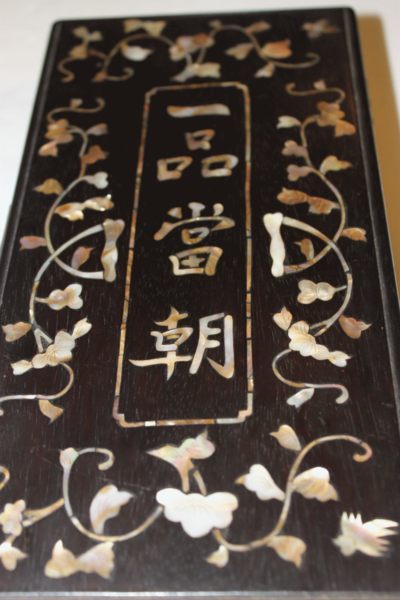 一品當朝